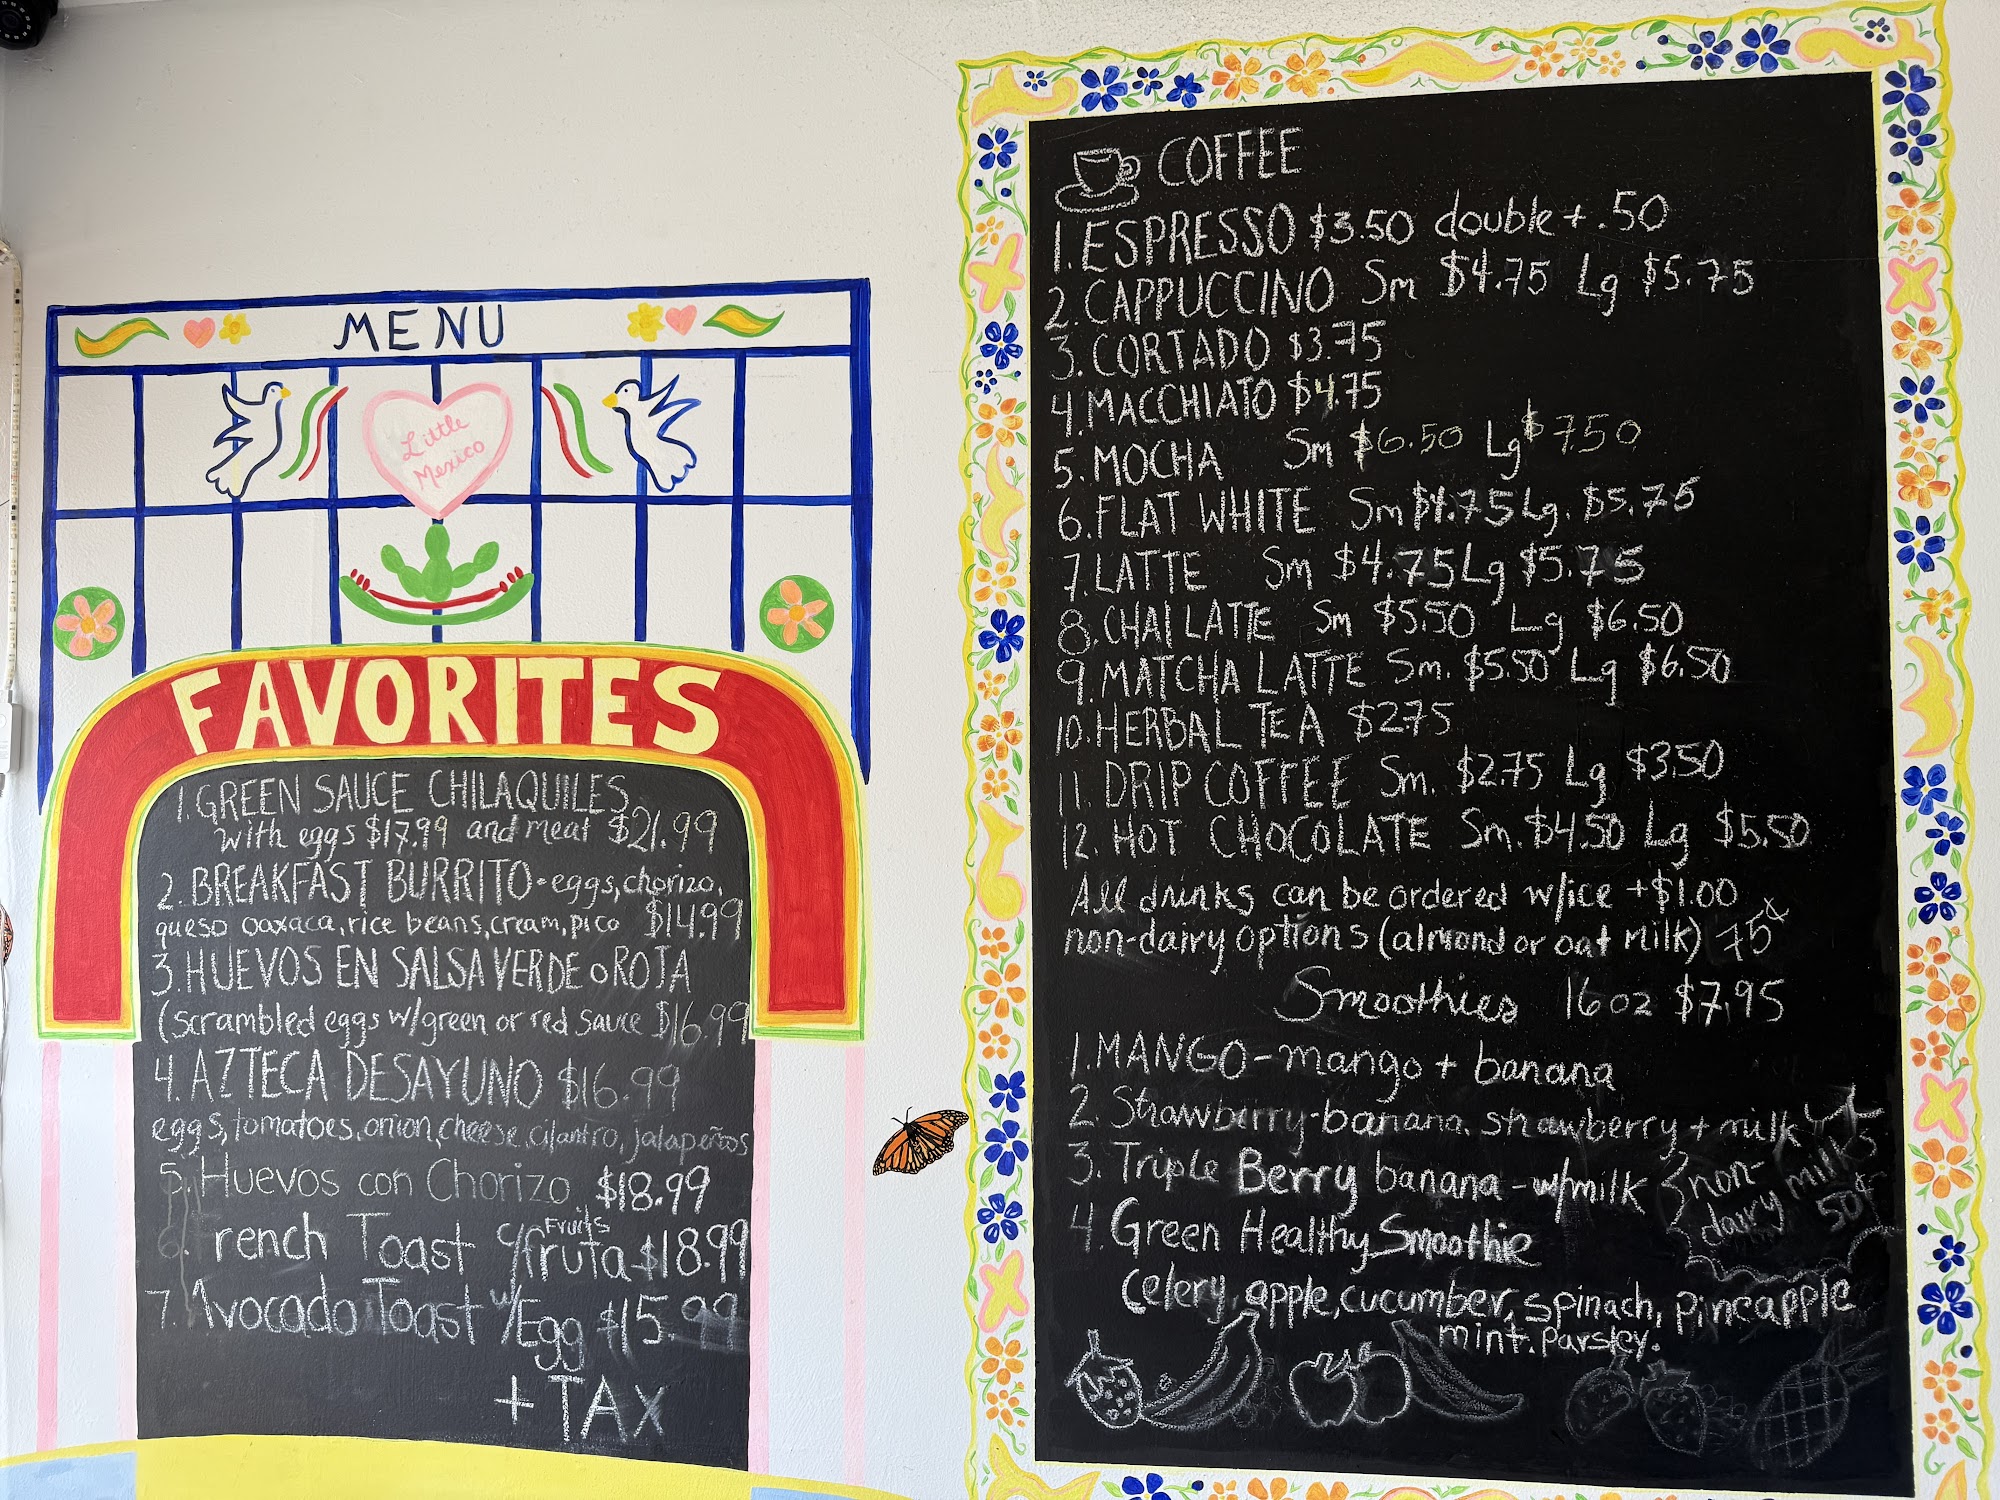 MENU
Little
Mexico
FAVORITES
1. GREEN SAUCE CHILAQUILES
with eggs $17.99 and meat $21.99
2. BREAKFAST BURRITO • eggs, chorizo,
queso oaxaca, rice beans, cream, pico $14.99
3. HUEVOS EN SALSA VERDE o ROJA
(scrambled eggs w/green or red sauce $16.99
4. AZTECA DESAYUNO $16.99
eggs, tomatoes, onion, cheese, cilantro, jalapeños
5. Huevos con Chorizo $18.99
6. French Toast c/fruta Fruits $18.99
7. Avocado Toast w/Egg $15.99
+ TAX
COFFEE
1. ESPRESSO $3.50 double + .50
2. CAPPUCCINO Sm $4.75 Lg $5.75
3. CORTADO $3.75
4. MACCHIATO $4.75
5. MOCHA Sm $6.50 Lg $7.50
6. FLAT WHITE Sm $4.75 Lg. $5.75
7. LATTE Sm $4.75 Lg $5.75
8. CHAI LATTE Sm $5.50 Lg $6.50
9. MATCHA LATTE Sm. $5.50 Lg $6.50
10. HERBAL TEA $2.75
11. DRIP COFFEE Sm. $2.75 Lg $3.50
12. HOT CHOCOLATE Sm. $4.50 Lg $5.50
All drinks can be ordered w/ice +$1.00
non-dairy options (almond or oat milk) 75¢
Smoothies 16 oz $7.95
1. MANGO - mango + banana
2. Strawberry-banana. strawberry + milk
3. Triple Berry banana - w/milk
non-
dairy milks
50¢
4. Green Healthy Smoothie
celery, apple, cucumber, spinach, pineapple
mint. parsley.